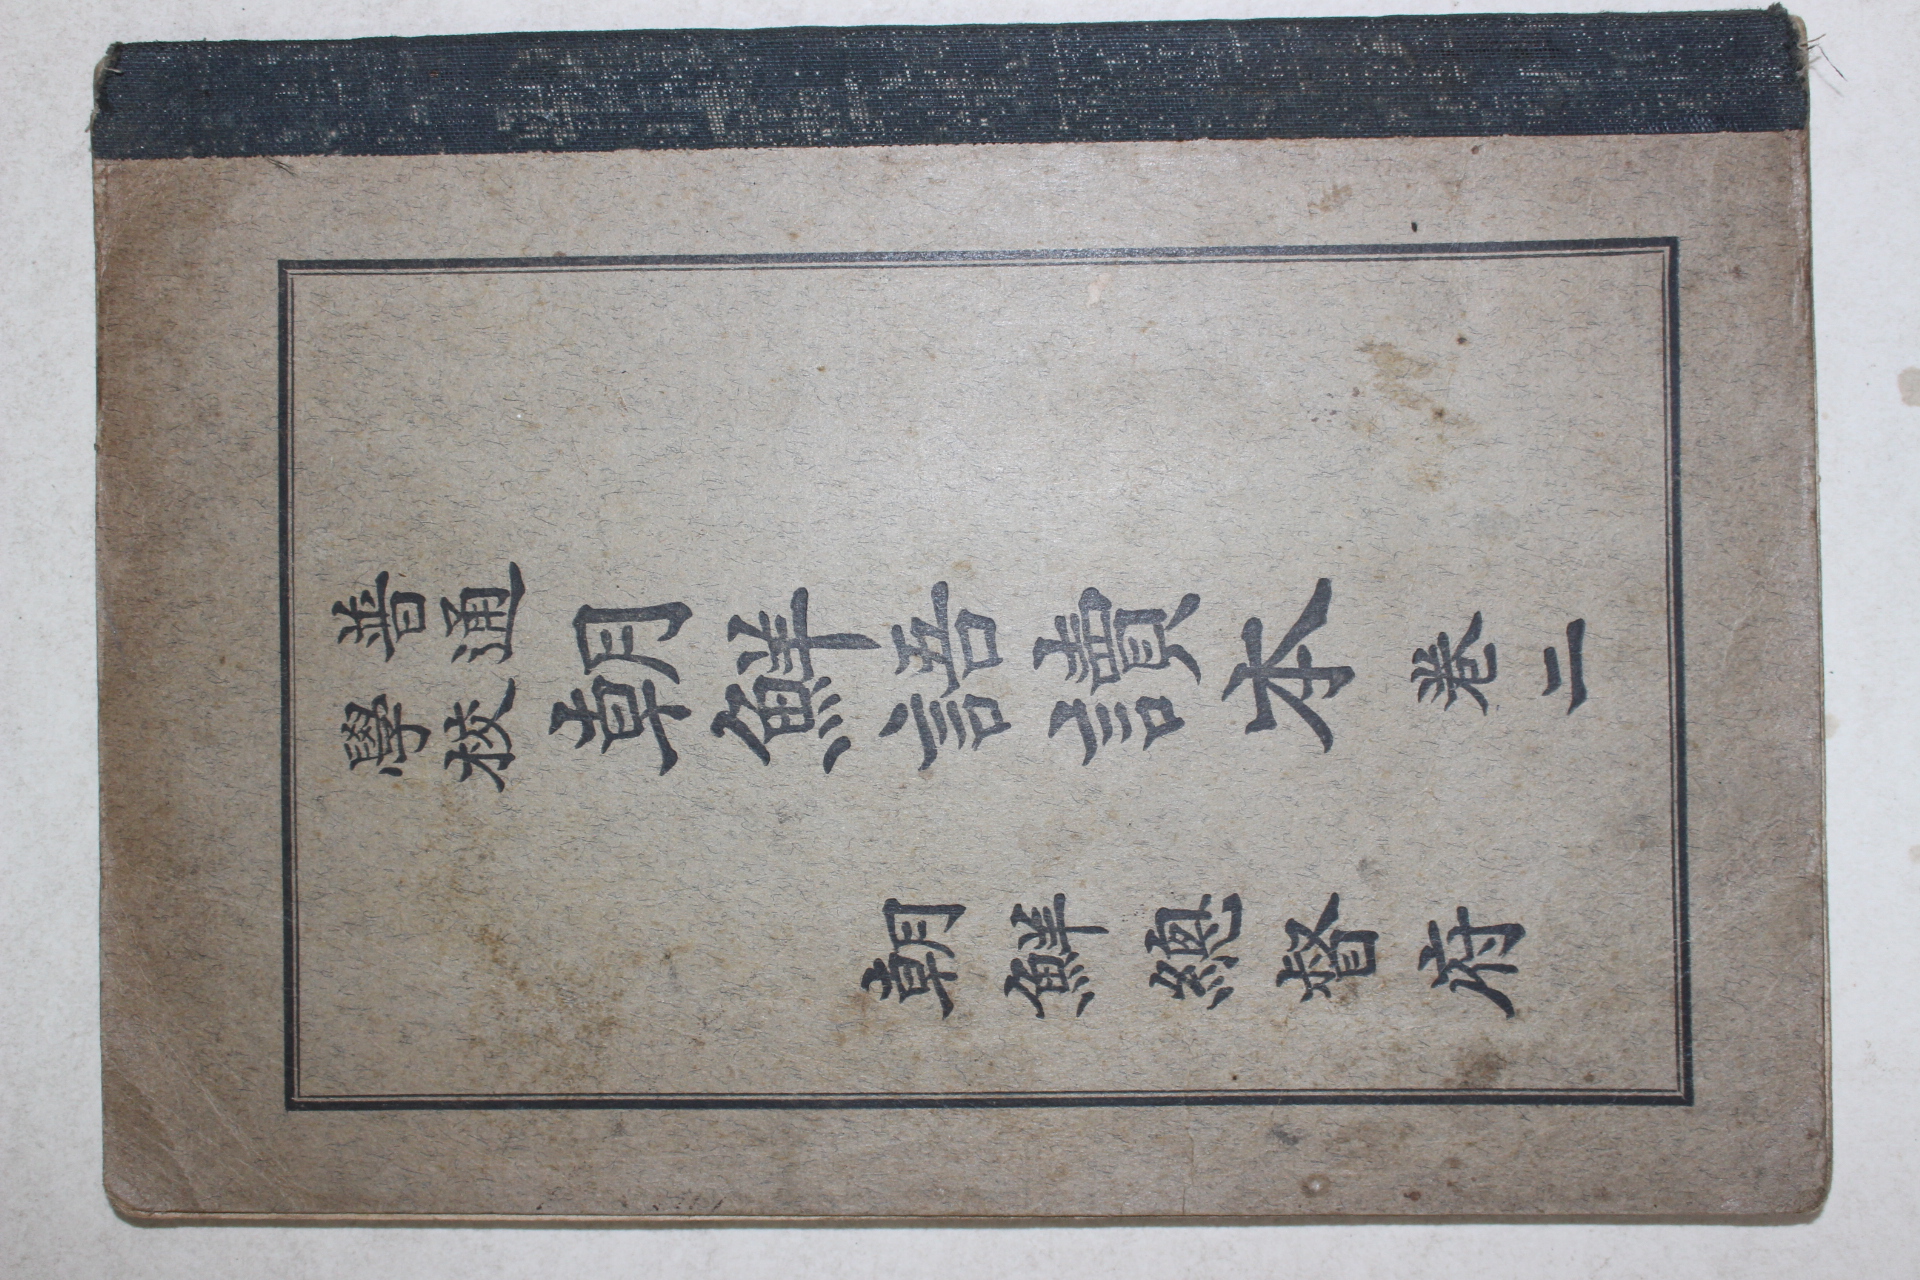 普通
學校
朝鮮語讀本 卷二
朝鮮總督府